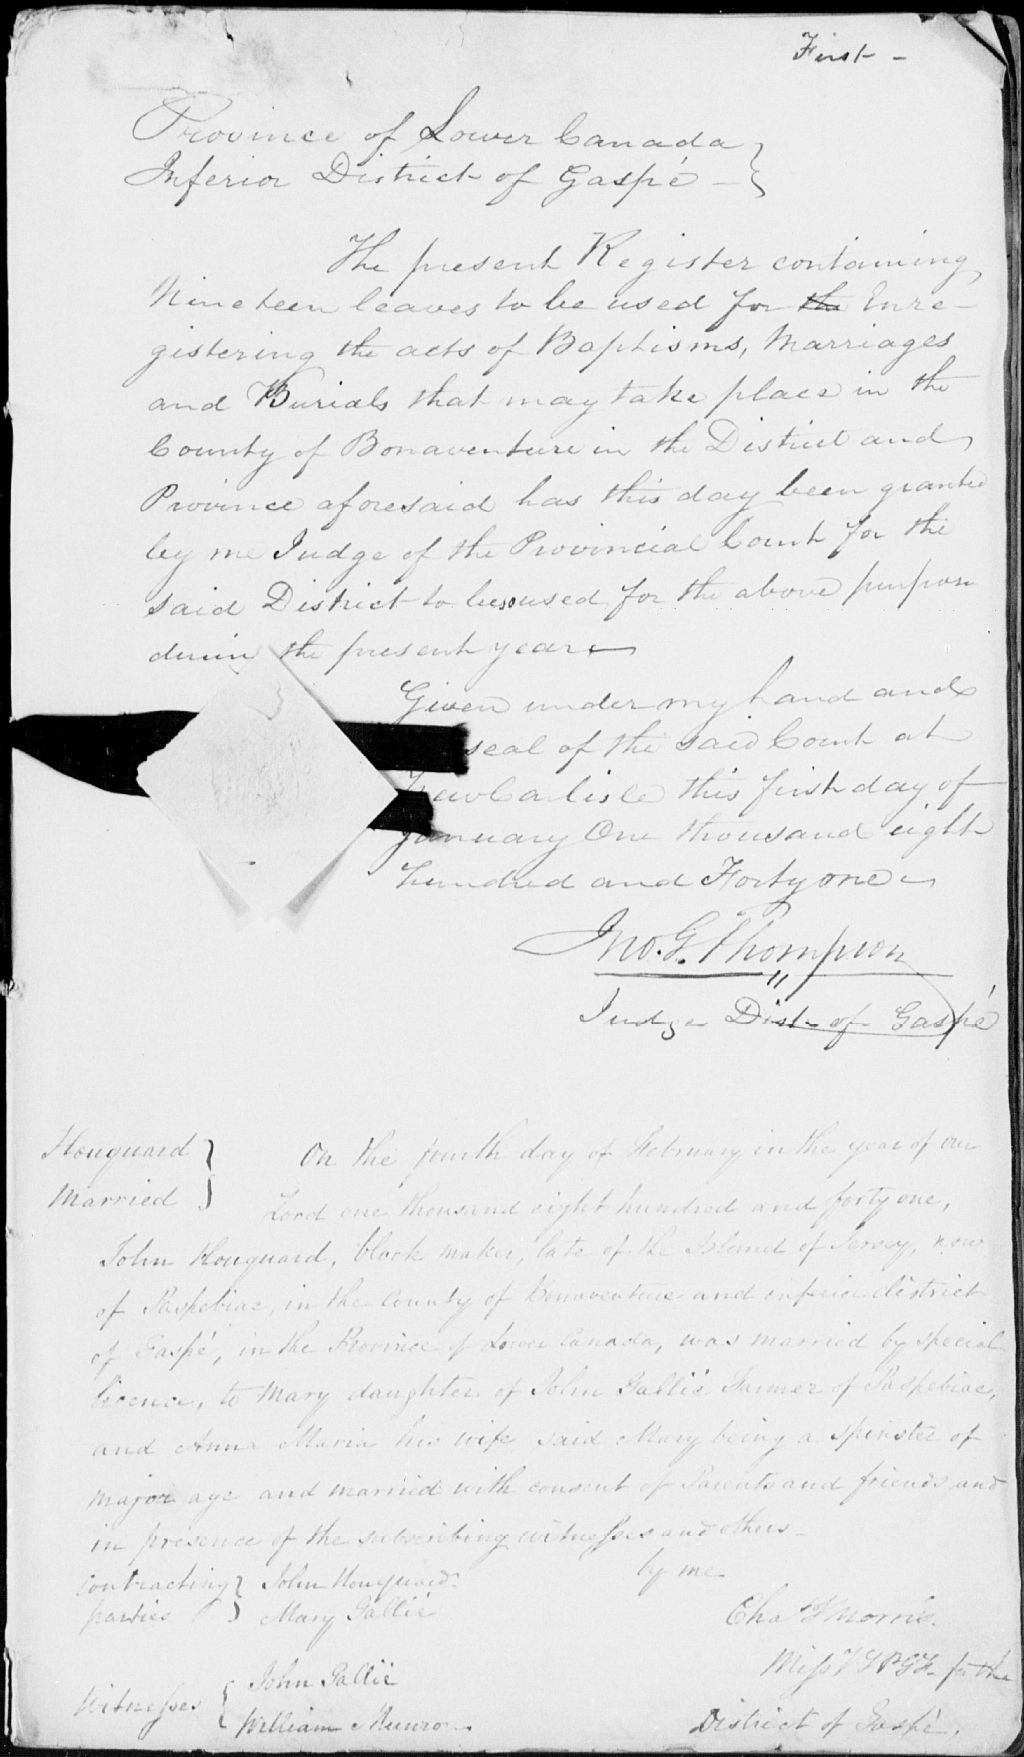 First -
Province of Lower Canada
Inferior District of Gaspé -
The present Register containing
Nineteen leaves to be used for the Enre-
gistering the acts of Baptisms, Marriages
and Burials that may take place in the
County of Bonaventure in the District and
Province aforesaid has this day been granted
by me Judge of the Provincial Court for the
said District to be used for the above purpose
durin the present year
Given under my hand and
seal of the said Court at
New Carlisle this first day of
January One thousand eight
hundred and Forty one
Jno. G. Thompson
Judge Dist- of Gaspé
Houguard
Married
On the fourth day of February in the year of our
Lord one thousand eight hundred and forty one,
John Houguard, block maker, late of the Island of Jersey, now
of Paspebiac, in the County of Bonaventure and inferior district
of Gaspé, in the Province of Lower Canada, was married by special
licence, to Mary daughter of John Gallié Farmer of Paspebiac,
and Anna Maria his wife said Mary being a spinster of
major age and married with consent of Parents and friends and
in presence of the subscribing witnesses and others-
by me
Contracting parties
John Houguard
Mary Gallié
Chas Morris.
Miss V S P G F- for the
District of Gaspé.
Witnesses
John Gallié
William Munro